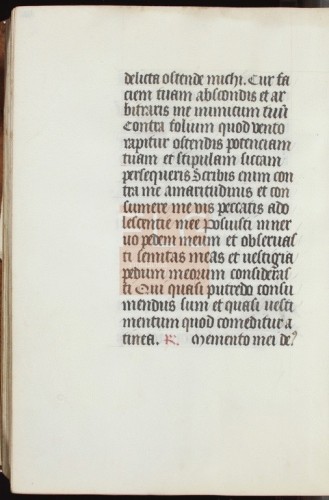 delicta ostende michi. Cur fa
ciem tuam abscondis et ar
bitraris me inimicum tuū
Contra folium quod vento
rapitur ostendis potenciam
tuam et stipulam siccam
persequeris Scribis enim con
tra me amaritudinis et con
sumere me vis peccatis ado
lescentie mee Posuisti in ner
uo pedem meum et obseruas
ti semitas meas et vestigia
pedum meorum consideras
ti Qui quasi putredo consu
mendus sum et quasi vesti
mentum quod comeditur a
tinea. R. Memento mei de⁹